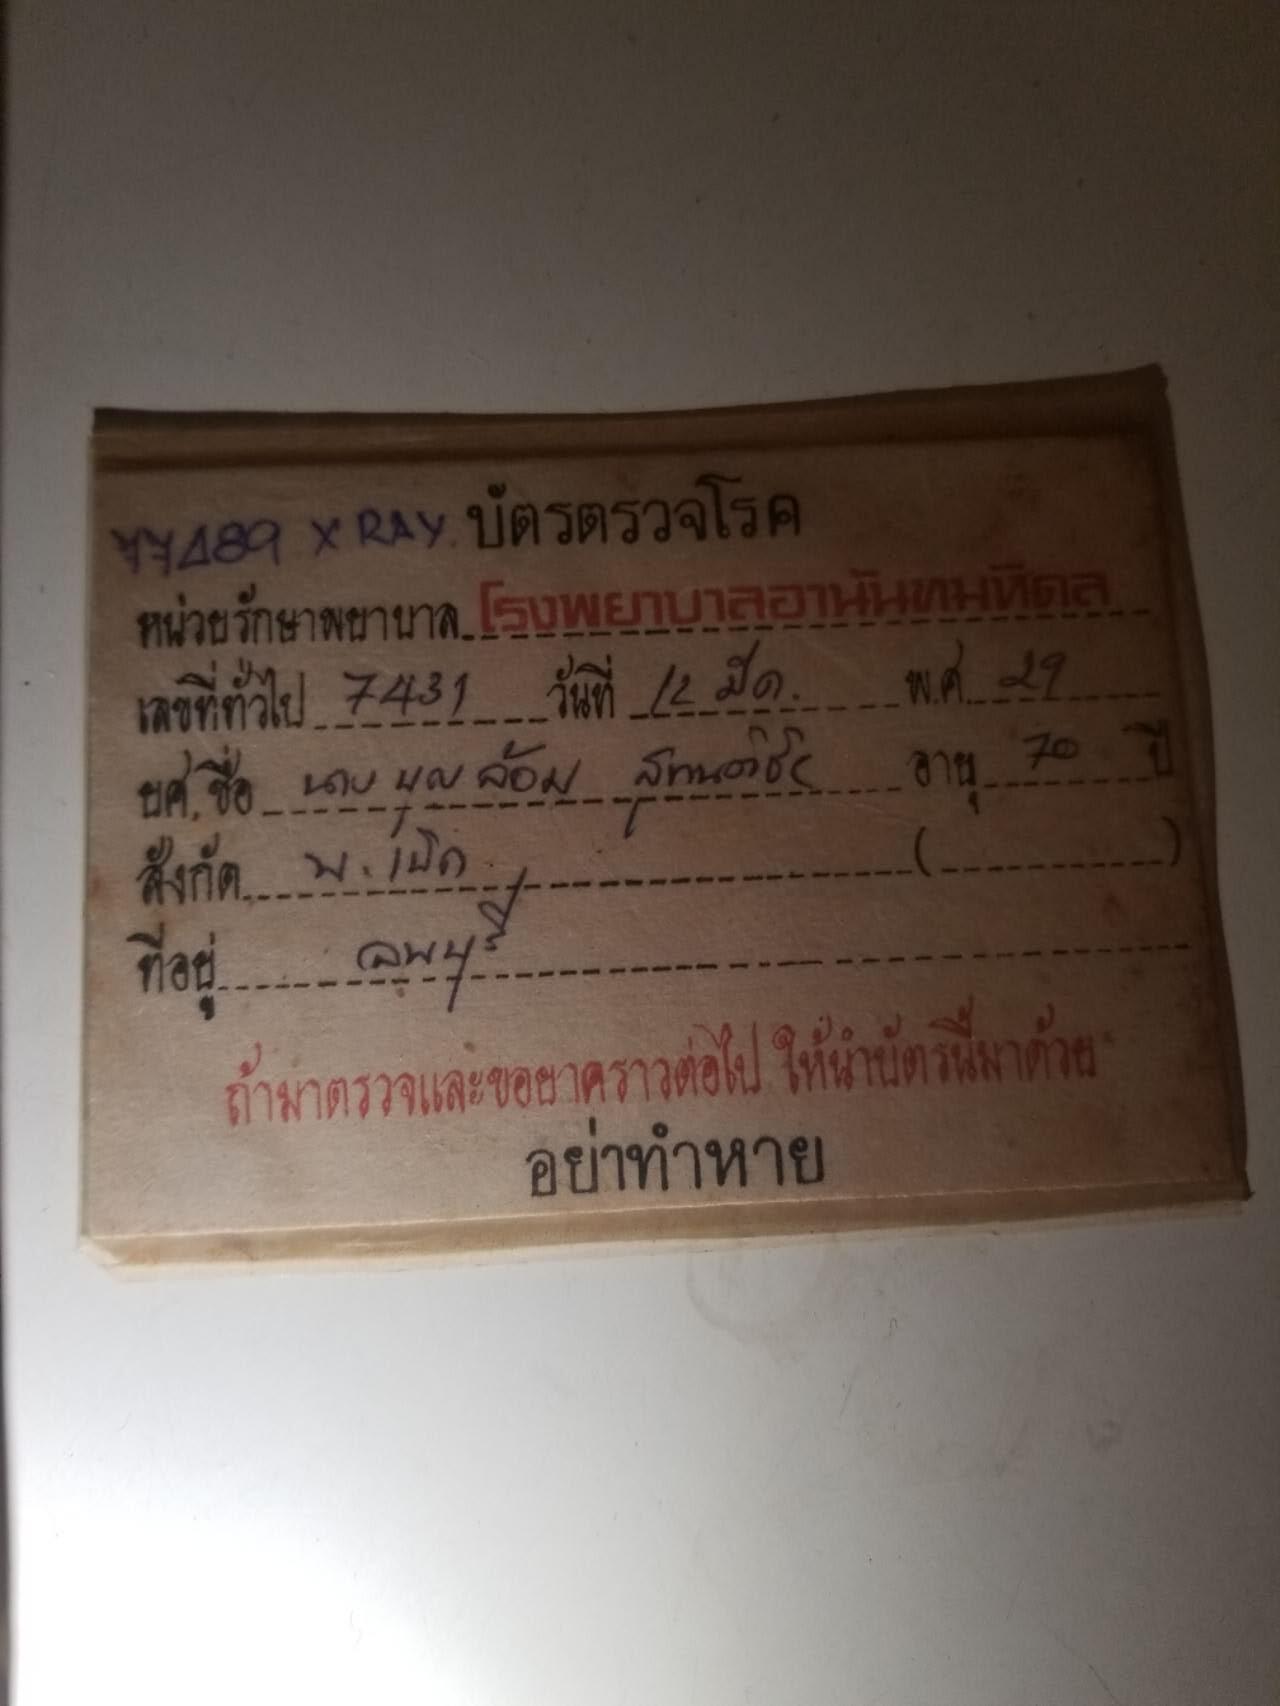 77489 X RAY. บัตรตรวจโรค
หน่วยรักษาพยาบาล โรงพยาบาลอานันทมหิดล
เลขที่ทั่วไป 7431 วันที่ 12 มี.ค. พ.ศ. 29
ยศ, ชื่อ นาง บุญล้อม อายุ 70 ปี
สังกัด ( )
ที่อยู่ ลพบุรี
ถ้ามาตรวจและขอยาคราวต่อไป ให้นำบัตรนี้มาด้วย
อย่าทำหาย